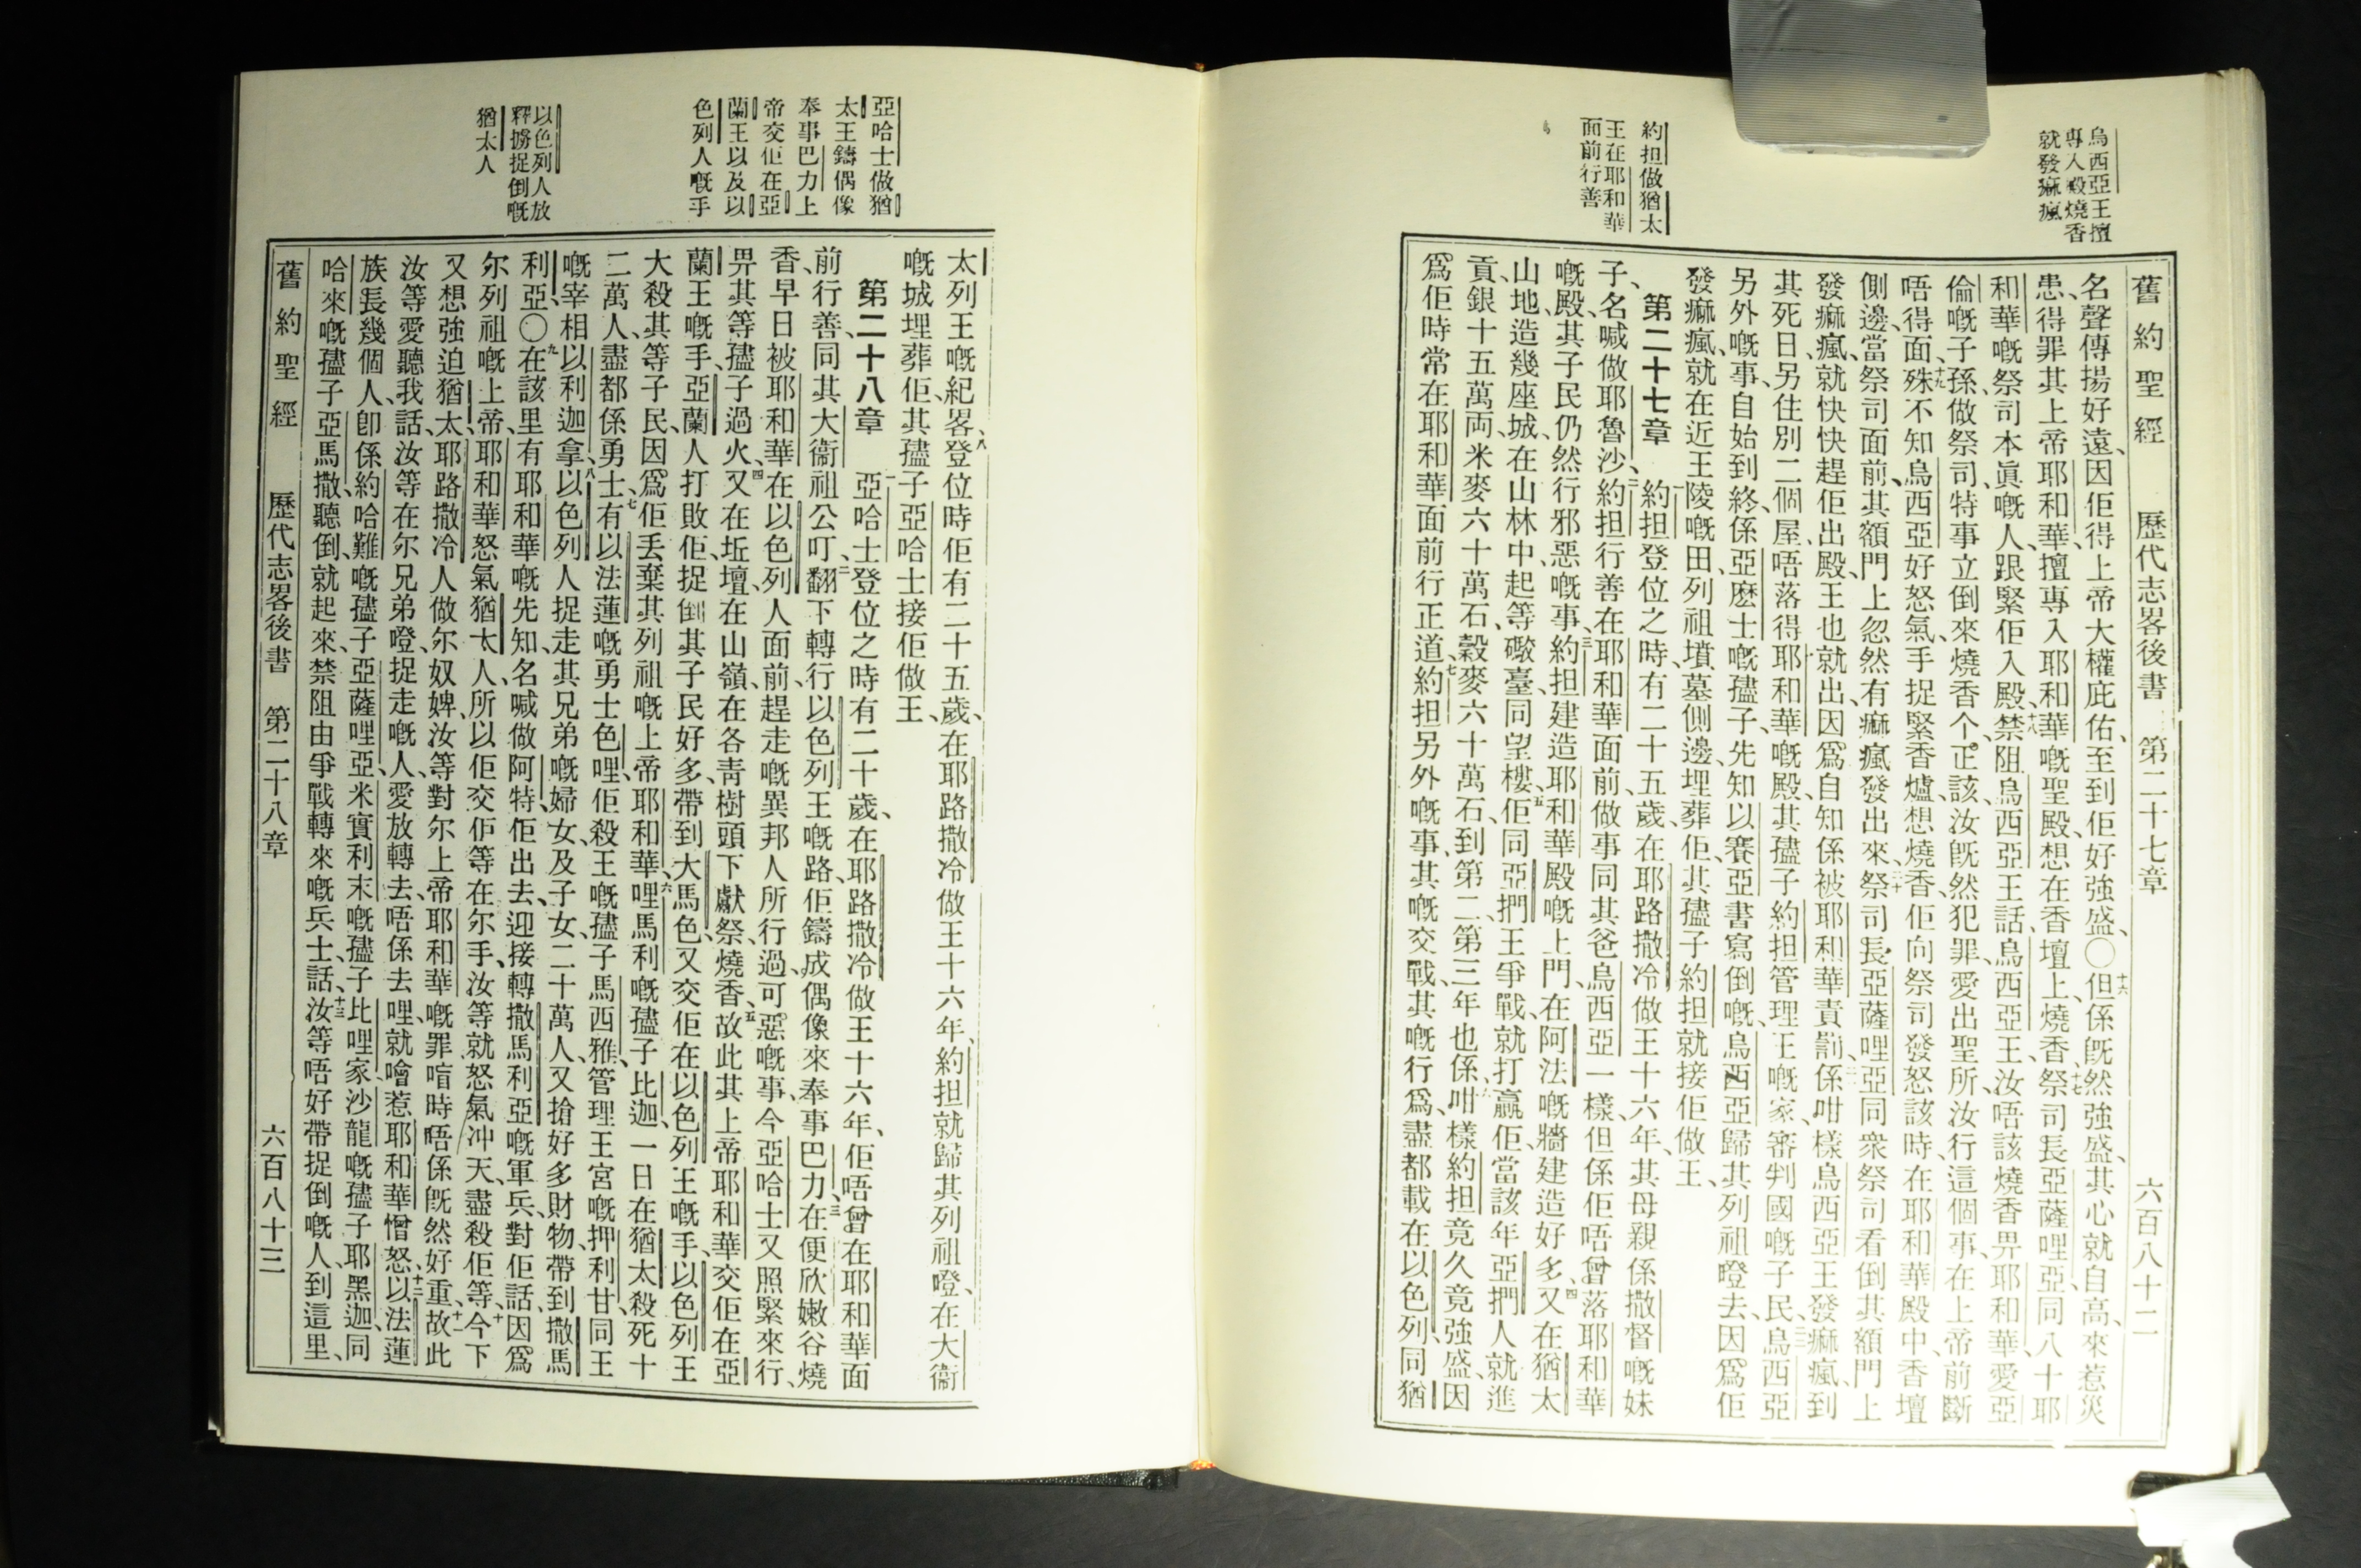 烏西亞王擅
專入殿燒香
就發痲瘋
約担做猶太
王在耶和華
面前行善
舊約聖經 歷代志畧後書 第二十七章 六百八十二
名聲傳揚好遠、因佢得上帝大權庇佑、至到佢好強盛、〇十六但係旣然強盛、其心就自高、來惹災
患、得罪其上帝耶和華、擅專入耶和華嘅聖殿、想在香壇上燒香、十七祭司長亞薩哩亞、同八十耶
和華嘅祭司本眞嘅人、跟緊佢入殿、十八禁阻烏西亞王話、烏西亞王、汝唔該燒香畀耶和華、愛亞
倫嘅子孫做祭司、特事立倒來燒香个、正該、汝旣然犯罪、愛出聖所、汝行這個事、在上帝前斷
唔得面殊、十九不知烏西亞好怒氣、手捉緊香爐、想燒香、佢向祭司發怒該時、在耶和華殿中、香壇
側邊、當祭司面前、其額門上忽然有痲瘋發出來、二十祭司長亞薩哩亞、同衆祭司看倒其額門上
發痲瘋、就快快趕佢出殿、王也就出、因爲自知係被耶和華責罰、係咁樣烏西亞王發痲瘋、到
其死日、另住別二個屋、唔落得耶和華嘅殿、其𡥧子約担管理王嘅家、審判國嘅子民、烏西亞
另外嘅事、自始到終、係亞麽士嘅𡥧子、先知以賽亞書寫倒嘅、烏西亞歸其列祖噔去、因爲佢
發痲瘋、就在近王陵嘅田、列祖墳墓側邊、埋葬佢、其𡥧子約担就接佢做王、
第二十七章 一約担登位之時、有二十五歲、在耶路撒冷做王十六年、其母親係撒督嘅妹
子、名喊做耶魯沙、二約担行善在耶和華面前、做事同其爸烏西亞一樣、但係佢唔曾落耶和華
嘅殿、其子民仍然行邪惡嘅事、三約担建造耶和華殿嘅上門、在阿法嘅牆建造好多、四又在猶太
山地、造幾座城、在山林中起等礮臺、同望樓、五佢同亞捫王爭戰、就打贏佢、當該年亞捫人就進
貢、銀十五萬両、米麥六十萬石、穀麥六十萬石、到第二、第三年也係咁樣、六約担竟久竟強盛、因
爲佢時常在耶和華面前行正道、七約担另外嘅事、其嘅交戰、其嘅行爲、盡都載在以色列、同猶
亞哈士做猶
太王鑄偶像
奉事巴力上
帝交佢在亞
蘭王以及以
色列人嘅手
以色列人放
釋擄捉倒嘅
猶太人
太列王嘅紀畧、八登位時佢有二十五歲、在耶路撒冷做王十六年、約担就歸其列祖噔、在大衞
嘅城埋葬佢、其𡥧子亞哈士接佢做王、
第二十八章 一亞哈士登位之時有二十歲、在耶路撒冷做王十六年、佢唔曾在耶和華面
前行善、同其大衞祖公叮、二翻下轉行以色列王嘅路、佢鑄成偶像來奉事巴力、三在便欣嫩谷燒
香、早日被耶和華在以色列人面前、趕走嘅異邦人所行過、可惡嘅事、今亞哈士又照緊來行、
畀其等𡥧子過火、四又在坵壇、在山嶺、在各靑樹頭下獻祭、燒香、五故此其上帝耶和華交佢在亞
蘭王嘅手、亞蘭人打敗佢、捉倒其子民好多、帶到大馬色、又交佢在以色列王嘅手、以色列王
大殺其等子民、因爲佢丢棄其列祖嘅上帝耶和華、六哩馬利嘅𡥧子比迦、一日在猶太殺死十
二萬人、盡都係勇士、七有以法蓮嘅勇士色哩、佢殺王嘅𡥧子馬西雅、管理王宮嘅押利甘、同王
嘅宰相以利迦拿、八以色列人捉走其兄弟嘅婦女、及子女、二十萬人、又搶好多財物、帶到撒馬
利亞、〇九在該里有耶和華嘅先知、名喊做阿特、佢出去、迎接轉撒馬利亞嘅軍兵、對佢話、因爲
尔列祖嘅上帝、耶和華怒氣猶太人、所以佢交佢等在尔手、汝等就怒氣冲天、盡殺佢等、十今下
又想強迫猶太、耶路撒冷人做尔奴婢、汝等對尔上帝耶和華嘅罪、唷時唔係旣然好重、十一故此
汝等愛聽我話、汝等在尔兄弟噔、捉走嘅人、愛放轉去、唔係去哩、就噲惹耶和華憎怒、十二以法蓮
族長幾個人、卽係約哈難嘅𡥧子亞薩哩亞、米實利末嘅𡥧子比哩家、沙龍嘅𡥧子耶黑迦、同
哈來嘅𡥧子亞馬撒、聽倒、就起來、禁阻由爭戰轉來嘅兵士、話、十三汝等唔好帶捉倒嘅人到這里、
舊約聖經 歷代志畧後書 第二十八章 六百八十三